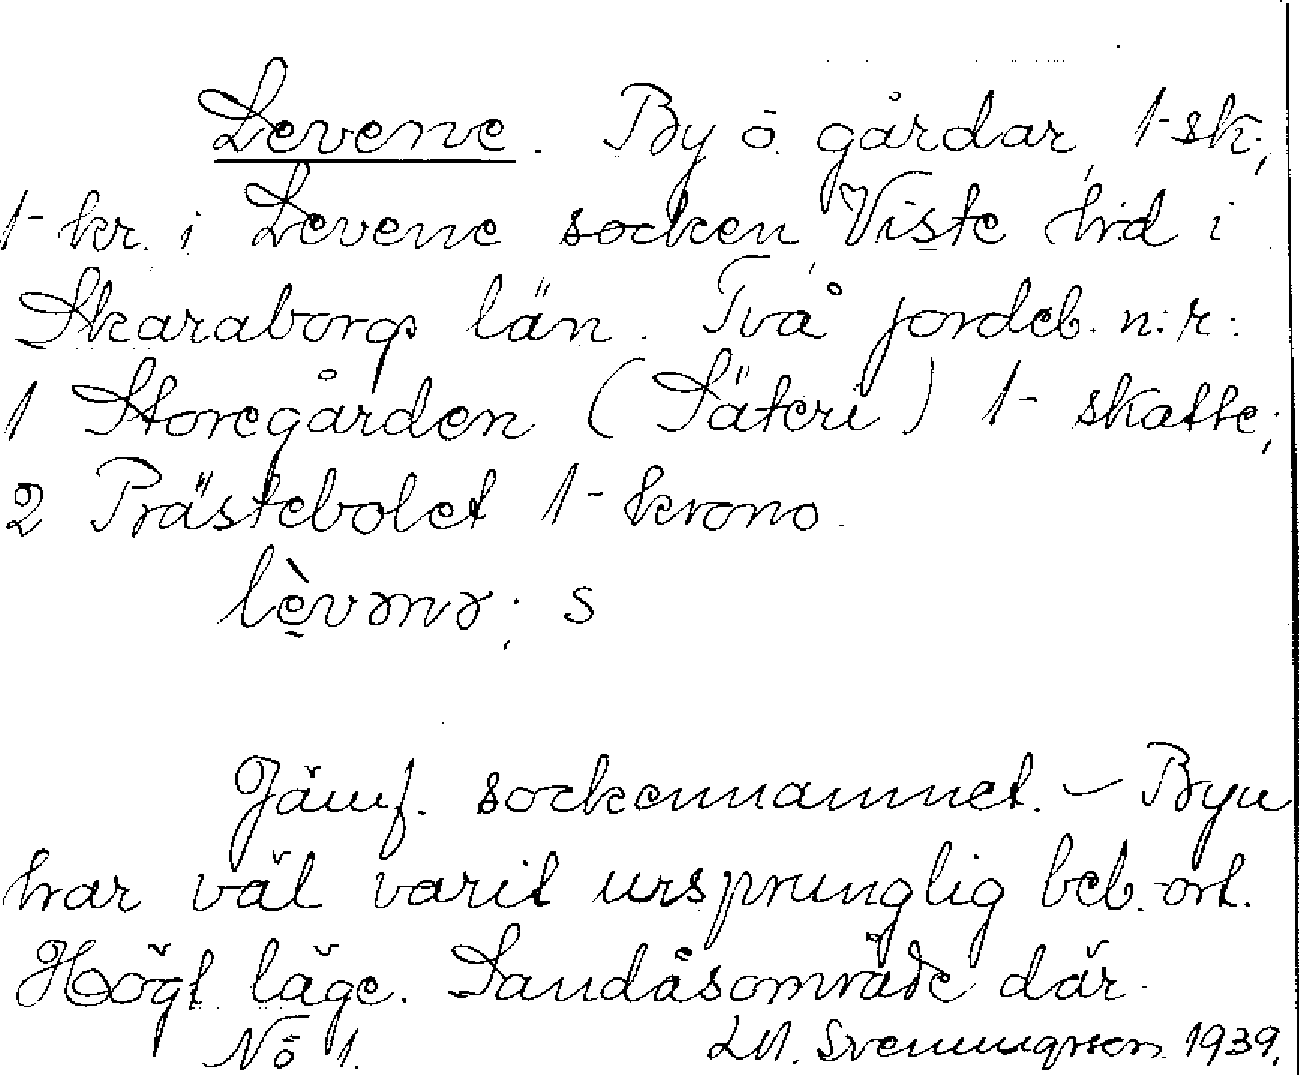 Levene. By o. gårdar, 1-sk:,
1- kr. i Levene socken Viste hrd i
Skaraborgs län. Två jordeb. n:r:
1 Storegården (Säteri) 1- skatte;
2 Prästebolet 1- krono.
lè̠vənə; s
Jämf. sockennamnet. - Byn
har väl varit ursprunglig beb.-ort.
Högt läge. Sandåsområde där.
No 1. LM. Svenungsson 1939.